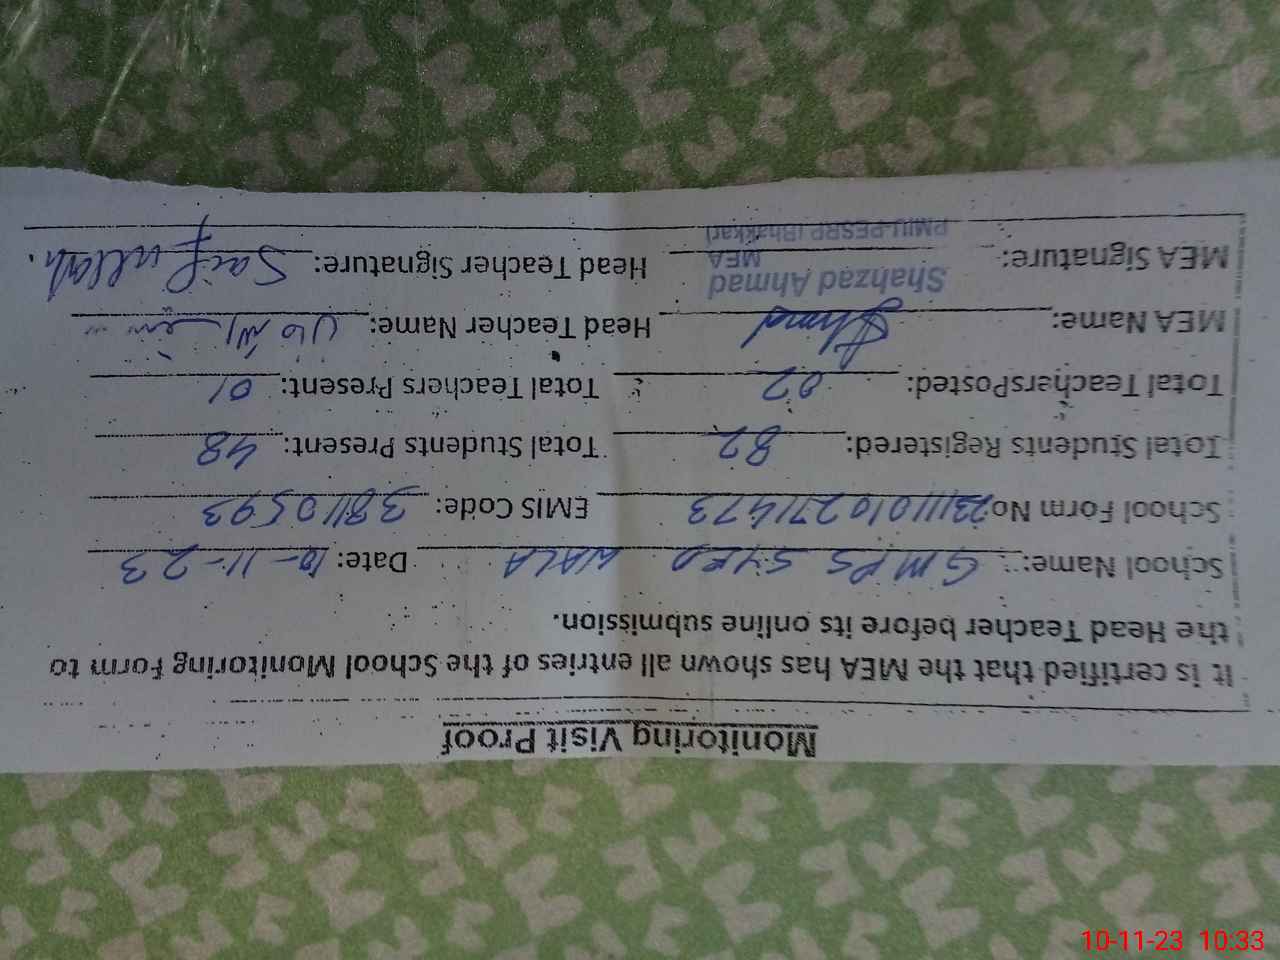 Monitoring Visit Proof
It is certified that the MEA has shown all entries of the School Monitoring Form to
the Head Teacher before its online submission.
School Name: GMPS SYED WALA Date: 10-11-23
School Form No 23111010271473 EMIS Code: 38110593
Total Students Registered: 82 Total Students Present: 48
Total TeachersPosted: 02 Total Teachers Present: 01
MEA Name: Ahmad Head Teacher Name:
MEA Signature: Shahzad Ahmad Head Teacher Signature: Saif ullah.
MEA
PMIU-PESRP (Bhakkar)
10-11-23 10:33